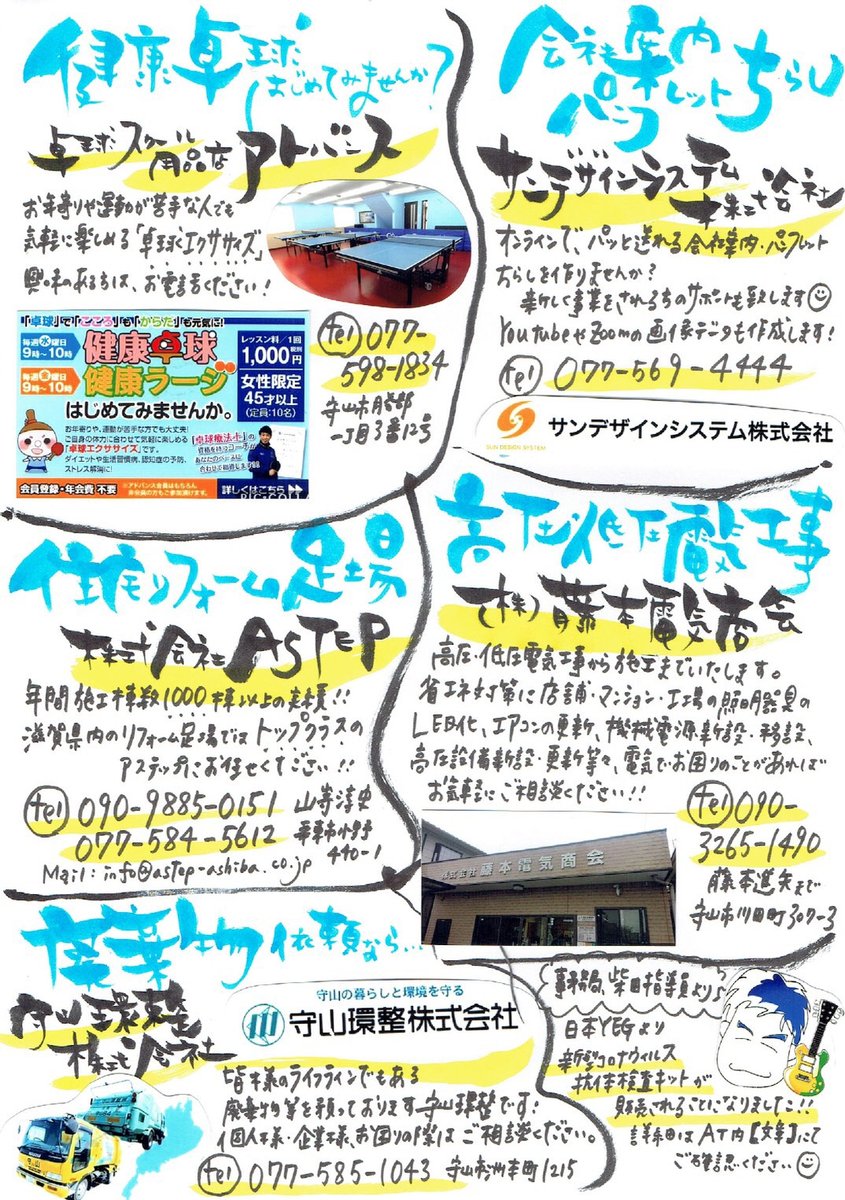 健康卓球はじめてみませんか?
卓球スクール
用品店 アドバンス
お年寄りや運動が苦手な人でも
気軽に楽しめる「卓球エクササイズ」
興味のある方は、お電話ください!
tel 077-
598-1834
守山市
一丁目3番12号
「卓球」で「こころ」も「からだ」も元気に!
毎週水曜日
9時~10時
健康卓球
毎週金曜日
9時~10時
健康ラージ
はじめてみませんか。
レッスン料/1回
1,000円
税別
女性限定
45才以上
(定員:10名)
お年寄りや、運動が苦手な方でも大丈夫!
ご自身の体力に合わせて気軽に楽しめる
「卓球エクササイズ」です。
ダイエットや生活習慣病、認知症の予防、
ストレス解消に!
「卓球療法士」の
資格を持つコーチが
あなたのペースに
合わせて指導します!!
会員登録・年会費 不要
※アドバンス会員はもちろん
非会員の方もご参加頂けます。
詳しくはこちら
会社案内
パンフレットちらし
サンデザインシステム
株式会社
オンラインで、パッと送れる会社案内・パンフレット
ちらしを作りませんか?
新しく事業をされる方のサポートも致します
YouTubeやZoomの画像データも作成します!
tel 077-569-4444
SUN DESIGN SYSTEM
サンデザインシステム株式会社
住宅リフォーム足場
株式会社ASTEP
年間施工棟数1000棟以上の実績!!
滋賀県内のリフォーム足場ではトップクラスの
アステップにお任せください!!
tel 090-9885-0151
077-584-5612
山嵜淳史
栗東市小野
440-1
Mail:info@astep-ashiba.co.jp
高圧・低圧電気工事
(株)藤本電気商会
高圧・低圧電気工事から施工までいたします。
省エネ対策に店舗・マンション・工場の照明器具の
LED化、エアコンの更新、機械電源新設・移設、
高圧設備新設・更新等々、電気でお困りのことがあれば
お気軽にご相談ください!!
tel 090-
3265-1490
藤本進矢まで
守山市川田町307-3
株式会社 藤本電気商会
廃棄物依頼なら…
守山環整
株式会社
守山の暮らしと環境を守る
守山環整株式会社
皆様のライフラインでもある
廃棄物等を預っております守山環整です!
個人様・企業様、お困りの際はご相談ください。
tel 077-585-1043
守山市洲本町1215
事務局、柴田指導員より
日本YEGより
新型コロナウィルス
抗体検査キットが
販売されることになりました!!
詳細はAT内【文章】にて
ご確認ください